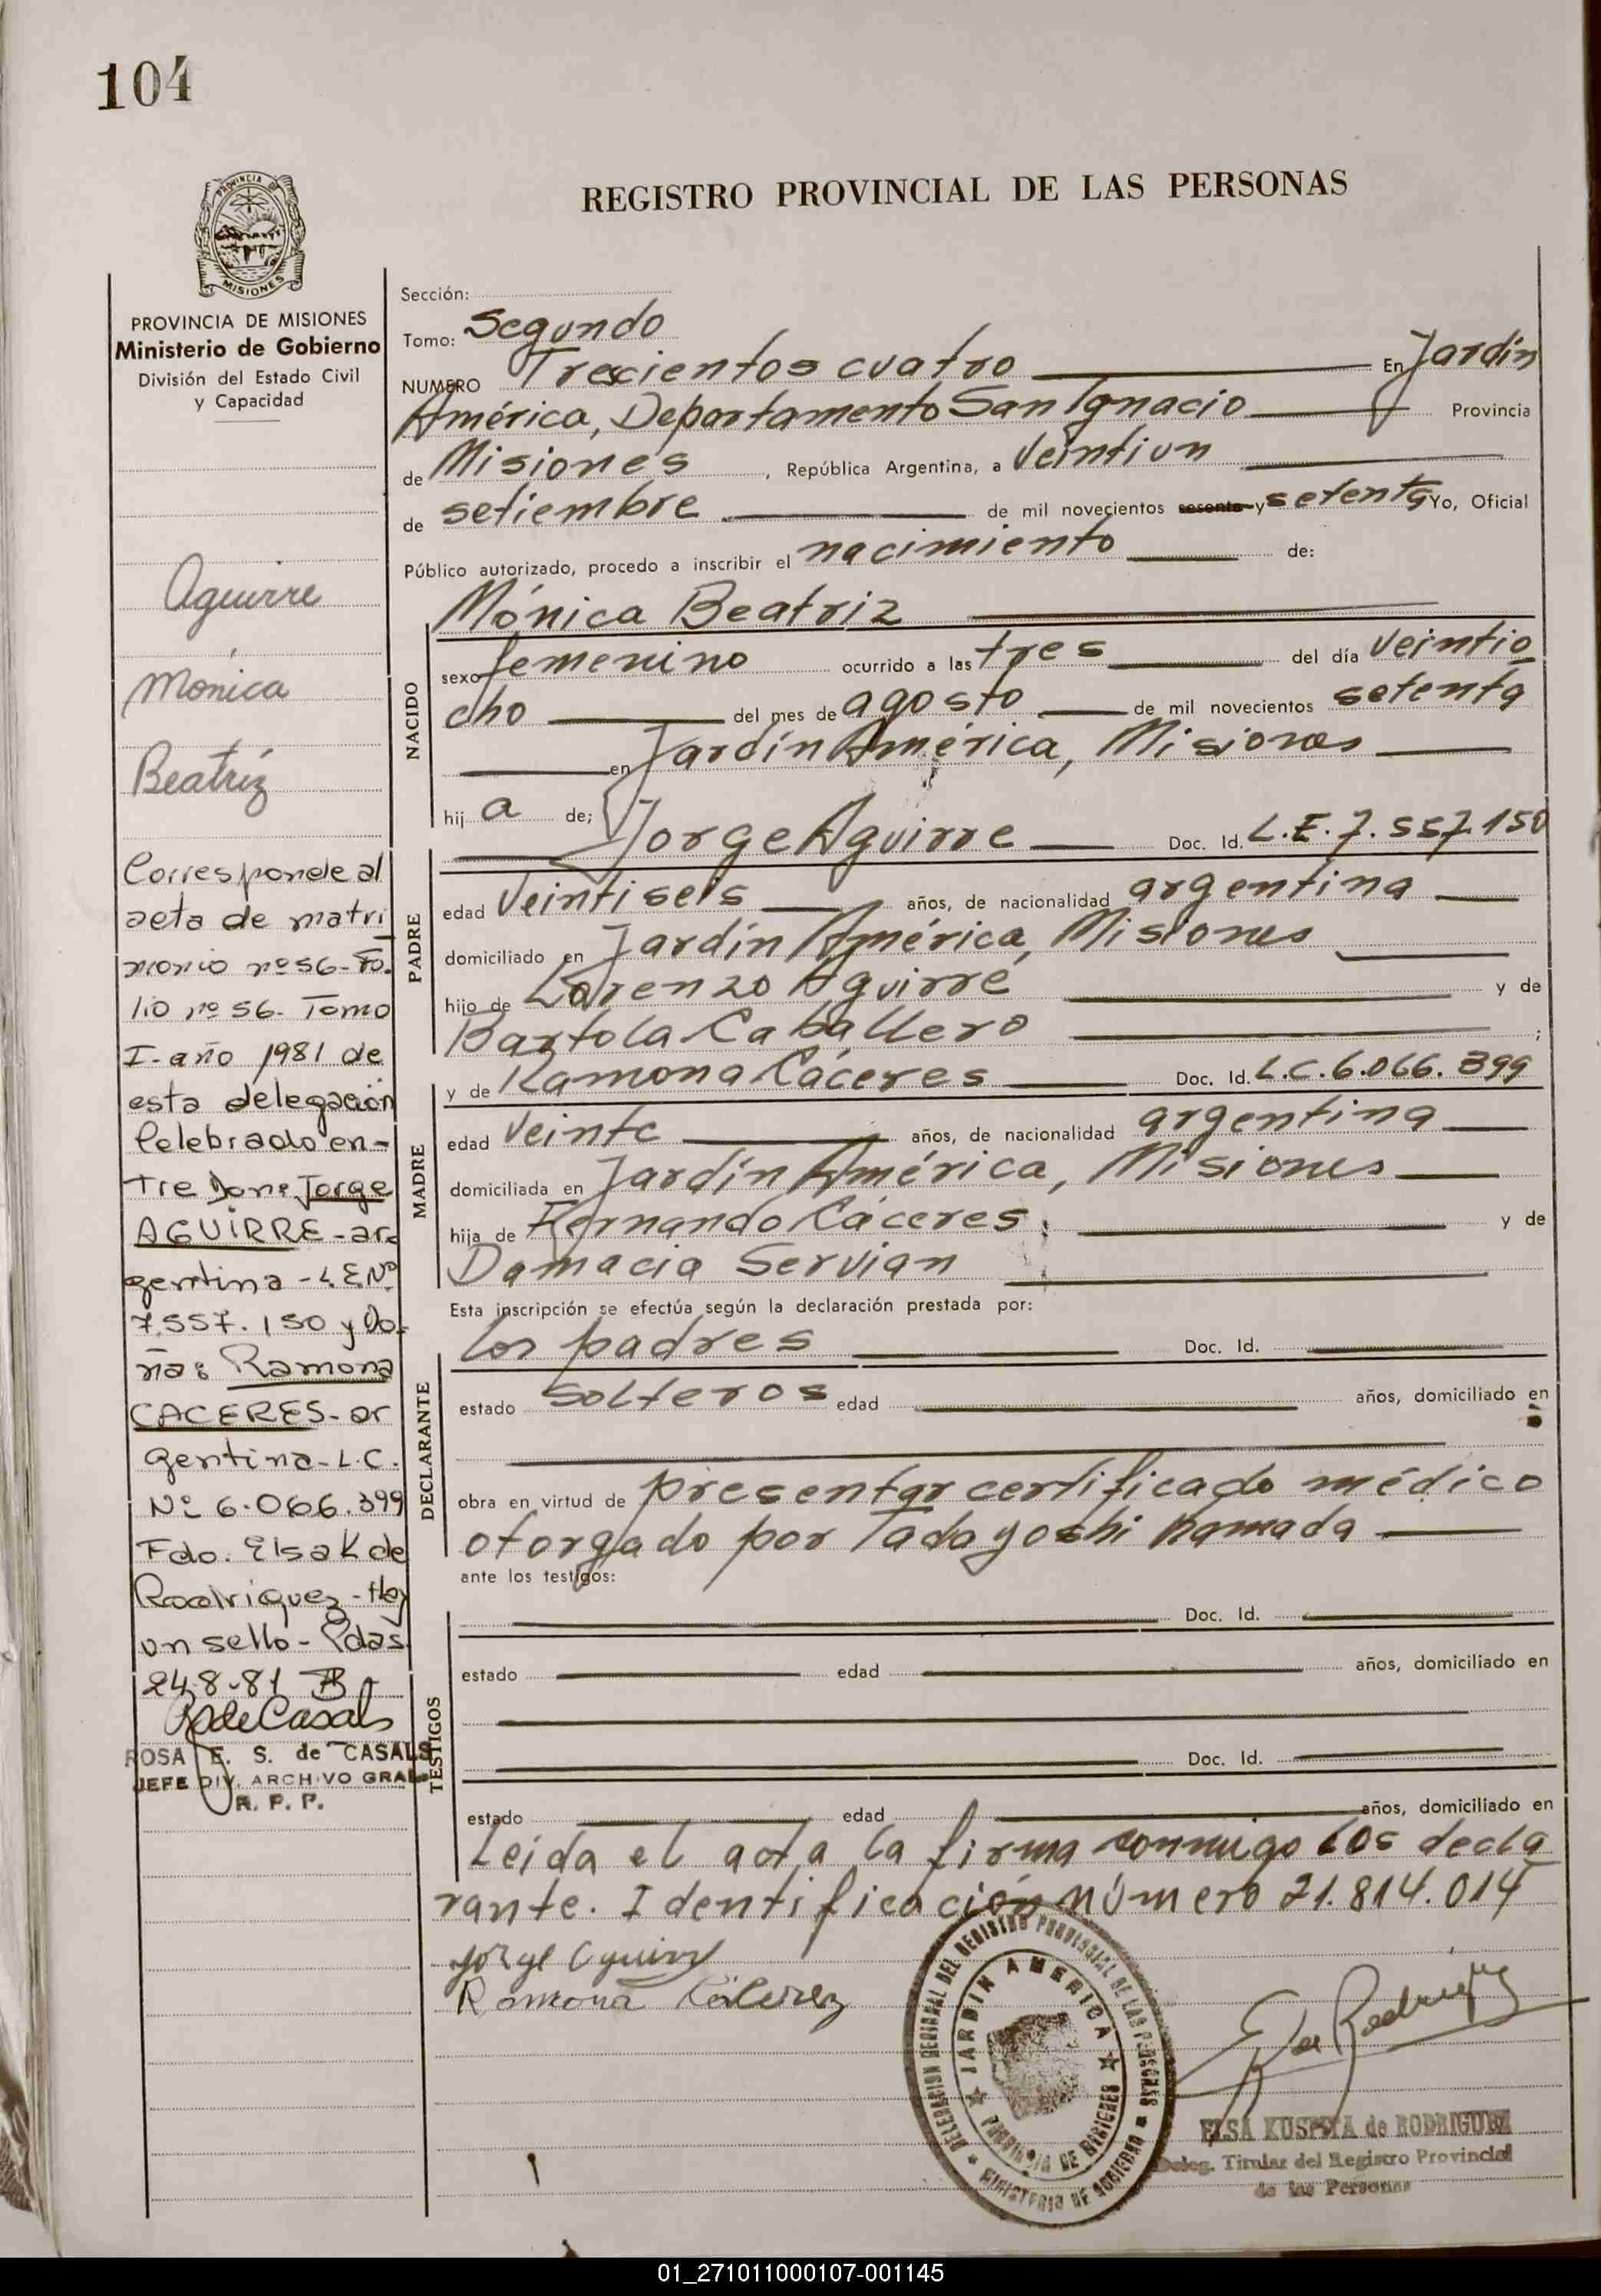 104
PROVINCIA DE
MISIONES
REGISTRO PROVINCIAL DE LAS PERSONAS
PROVINCIA DE MISIONES
Ministerio de Gobierno
División del Estado Civil
y Capacidad
Aguirre
Mónica
Beatríz
Corresponde al
acta de matri
monio nº 56-Fo.
lio nº 56. Tomo
I-año 1981 de
esta delegación
Celebrado en-
tre Don: Jorge
AGUIRRE-ar
gentina-L.E.Nº
7.557.150 y Do-
ña: Ramona
CACERES-ar
gentina-L.C.
Nº 6.066.399
Fdo. Elsa K de
Rodriguez-Hay
un sello-Pdas
24-8-81
R de Casals
ROSA E. S. de CASALS
JEFE DIV. ARCHIVO GRAL
R. P. P.
Sección:
Tomo: Segundo
NUMERO Trescientos cuatro En Jardín
América, Departamento San Ignacio Provincia
de Misiones, República Argentina, a Veintiun
de setiembre de mil novecientos sesenta y setenta Yo, Oficial
Público autorizado, procedo a inscribir el nacimiento de:
Mónica Beatriz
NACIDO
sexo femenino ocurrido a las tres del día veintio
cho del mes de agosto de mil novecientos setenta
en Jardín América, Misiones
hij a de;
Jorge Aguirre Doc. Id. L.E. 7.557.150
PADRE
edad Veintiseis años, de nacionalidad argentina
domiciliado en Jardín América, Misiones
hijo de Lorenzo Aguirre y de
Bartola Caballero ;
y de Ramona Cáceres Doc. Id. L.C. 6.066.399
MADRE
edad Veinte años, de nacionalidad argentina
domiciliada en Jardín América, Misiones
hija de Fernando Cáceres y de
Damacia Servian
Esta inscripción se efectúa según la declaración prestada por:
los padres Doc. Id.
DECLARANTE
estado solteros edad años, domiciliado en
obra en virtud de presentar certificado médico
otorgado por Tadayoshi Hamada
ante los testigos:
TESTIGOS
Doc. Id.
estado edad años, domiciliado en
Doc. Id.
estado edad años, domiciliado en
Leida el acta la firma conmigo los decla
rante. Identificación número 21.814.014
Jorge Aguirre
Ramona Cácerez
DELEGACION REGIONAL DEL REGISTRO PROVINCIAL DE LAS PERSONAS
MINISTERIO DE GOBIERNO
JARDIN AMERICA
PROVINCIA DE MISIONES
E de Rodriguez
ELSA de RODRIGUEZ
Deleg. Titular del Registro Provincial
de las Personas
01_271011000107-001145